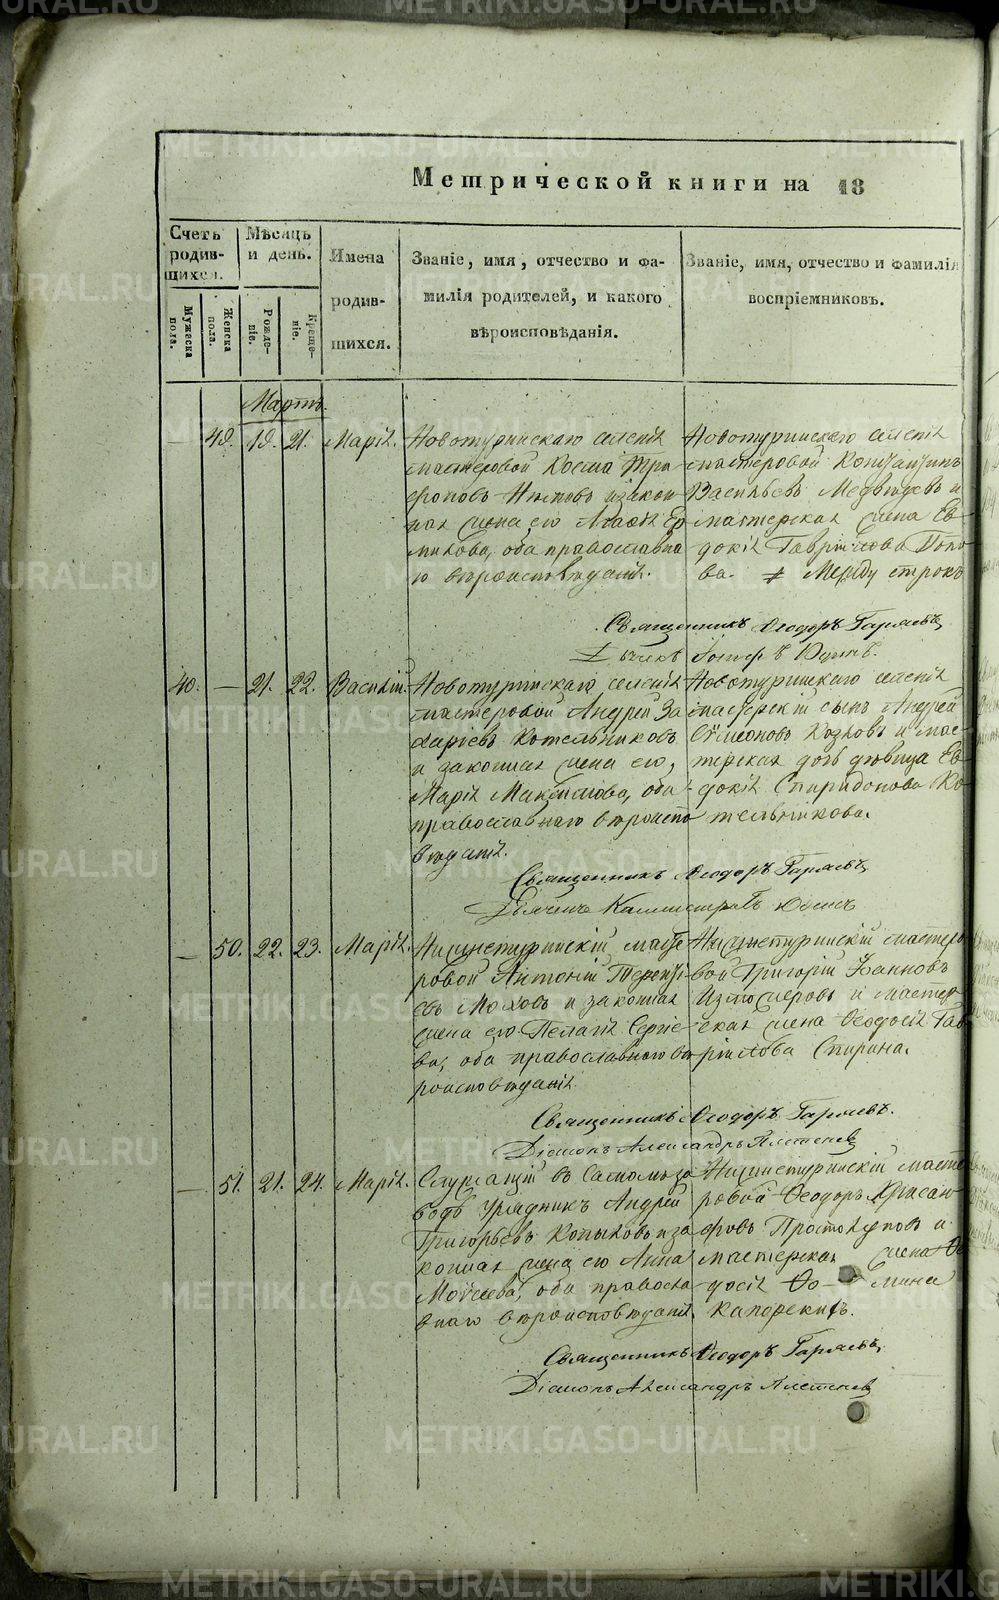 METRIKI.GASO-URAL.RU
Метрической книги на 18
Счетъ родив-шихся.
Мѣсяцъ и день.
Имена родив-шихся.
Званіе, имя, отчество и фа-
милія родителей, и какого
вѣроисповѣданія.
Званіе, имя, отчество и фамилія
воспріемниковъ.
Мужеска пола.
Женска пола.
Рожде-ніе.
Креще-ніе.
Мартъ.
— 49. 19. 21. Марія.
Новотуринскаго селенія
мастеровой Косма Три-
фоновъ и закон-
ная жена его Ер-
милова, оба православна-
го вѣроисповѣданія.
Новотуринскаго селенія
мастеровой Константинъ
Васильевъ Медвѣдевъ и
мастерская жена Ев-
докія Гаврилова Попо-
ва. Между строкъ
Священникъ Ѳеодоръ Гаряевъ
40. — 21. 22. Василій.
Новотуринскаго селенія
мастеровой Андрей За-
харіевъ Котельниковъ
и законная жена его,
Марія Максимова, оба
православнаго вѣроиспо-
вѣданія.
Новотуринскаго селенія
мастерскій сынъ Андрей
Сѵмеоновъ Козловъ и мас-
терская дочь дѣвица Ев-
докія Спиридонова Ко-
тельникова.
Священникъ Ѳеодоръ Гаряевъ
Дьячекъ Каллистратъ
— 50. 22. 23. Марія.
Нижнетуринскій масте-
ровой Антоній Теренті-
евъ Моховъ и законная
жена его Пелагія Сергіе-
ва, оба православнаго вѣ-
роисповѣданія.
Нижнетуринскій мастеро-
вой Григорій Іоанновъ
Изможеровъ и мастер-
ская жена Ѳеодосія Гав-
рилова Спирина.
Священникъ Ѳеодоръ Гаряевъ.
Діаконъ Александръ Плетеневъ
— 51. 21. 24. Марія.
Служащій въ заводѣ
Урядникъ Андрей
Григорьевъ Копыловъ и за-
конная жена его Анна
Моисеева, оба правосла-
внаго вѣроисповѣданія.
Нижнетуринскій масте-
ровой Ѳеодоръ Хрисан-
фовъ Простолуповъ и
мастерская жена Ѳе-
досія Ѳо- мина
Священникъ Ѳеодоръ Гаряевъ,
Діаконъ Александръ Плетеневъ